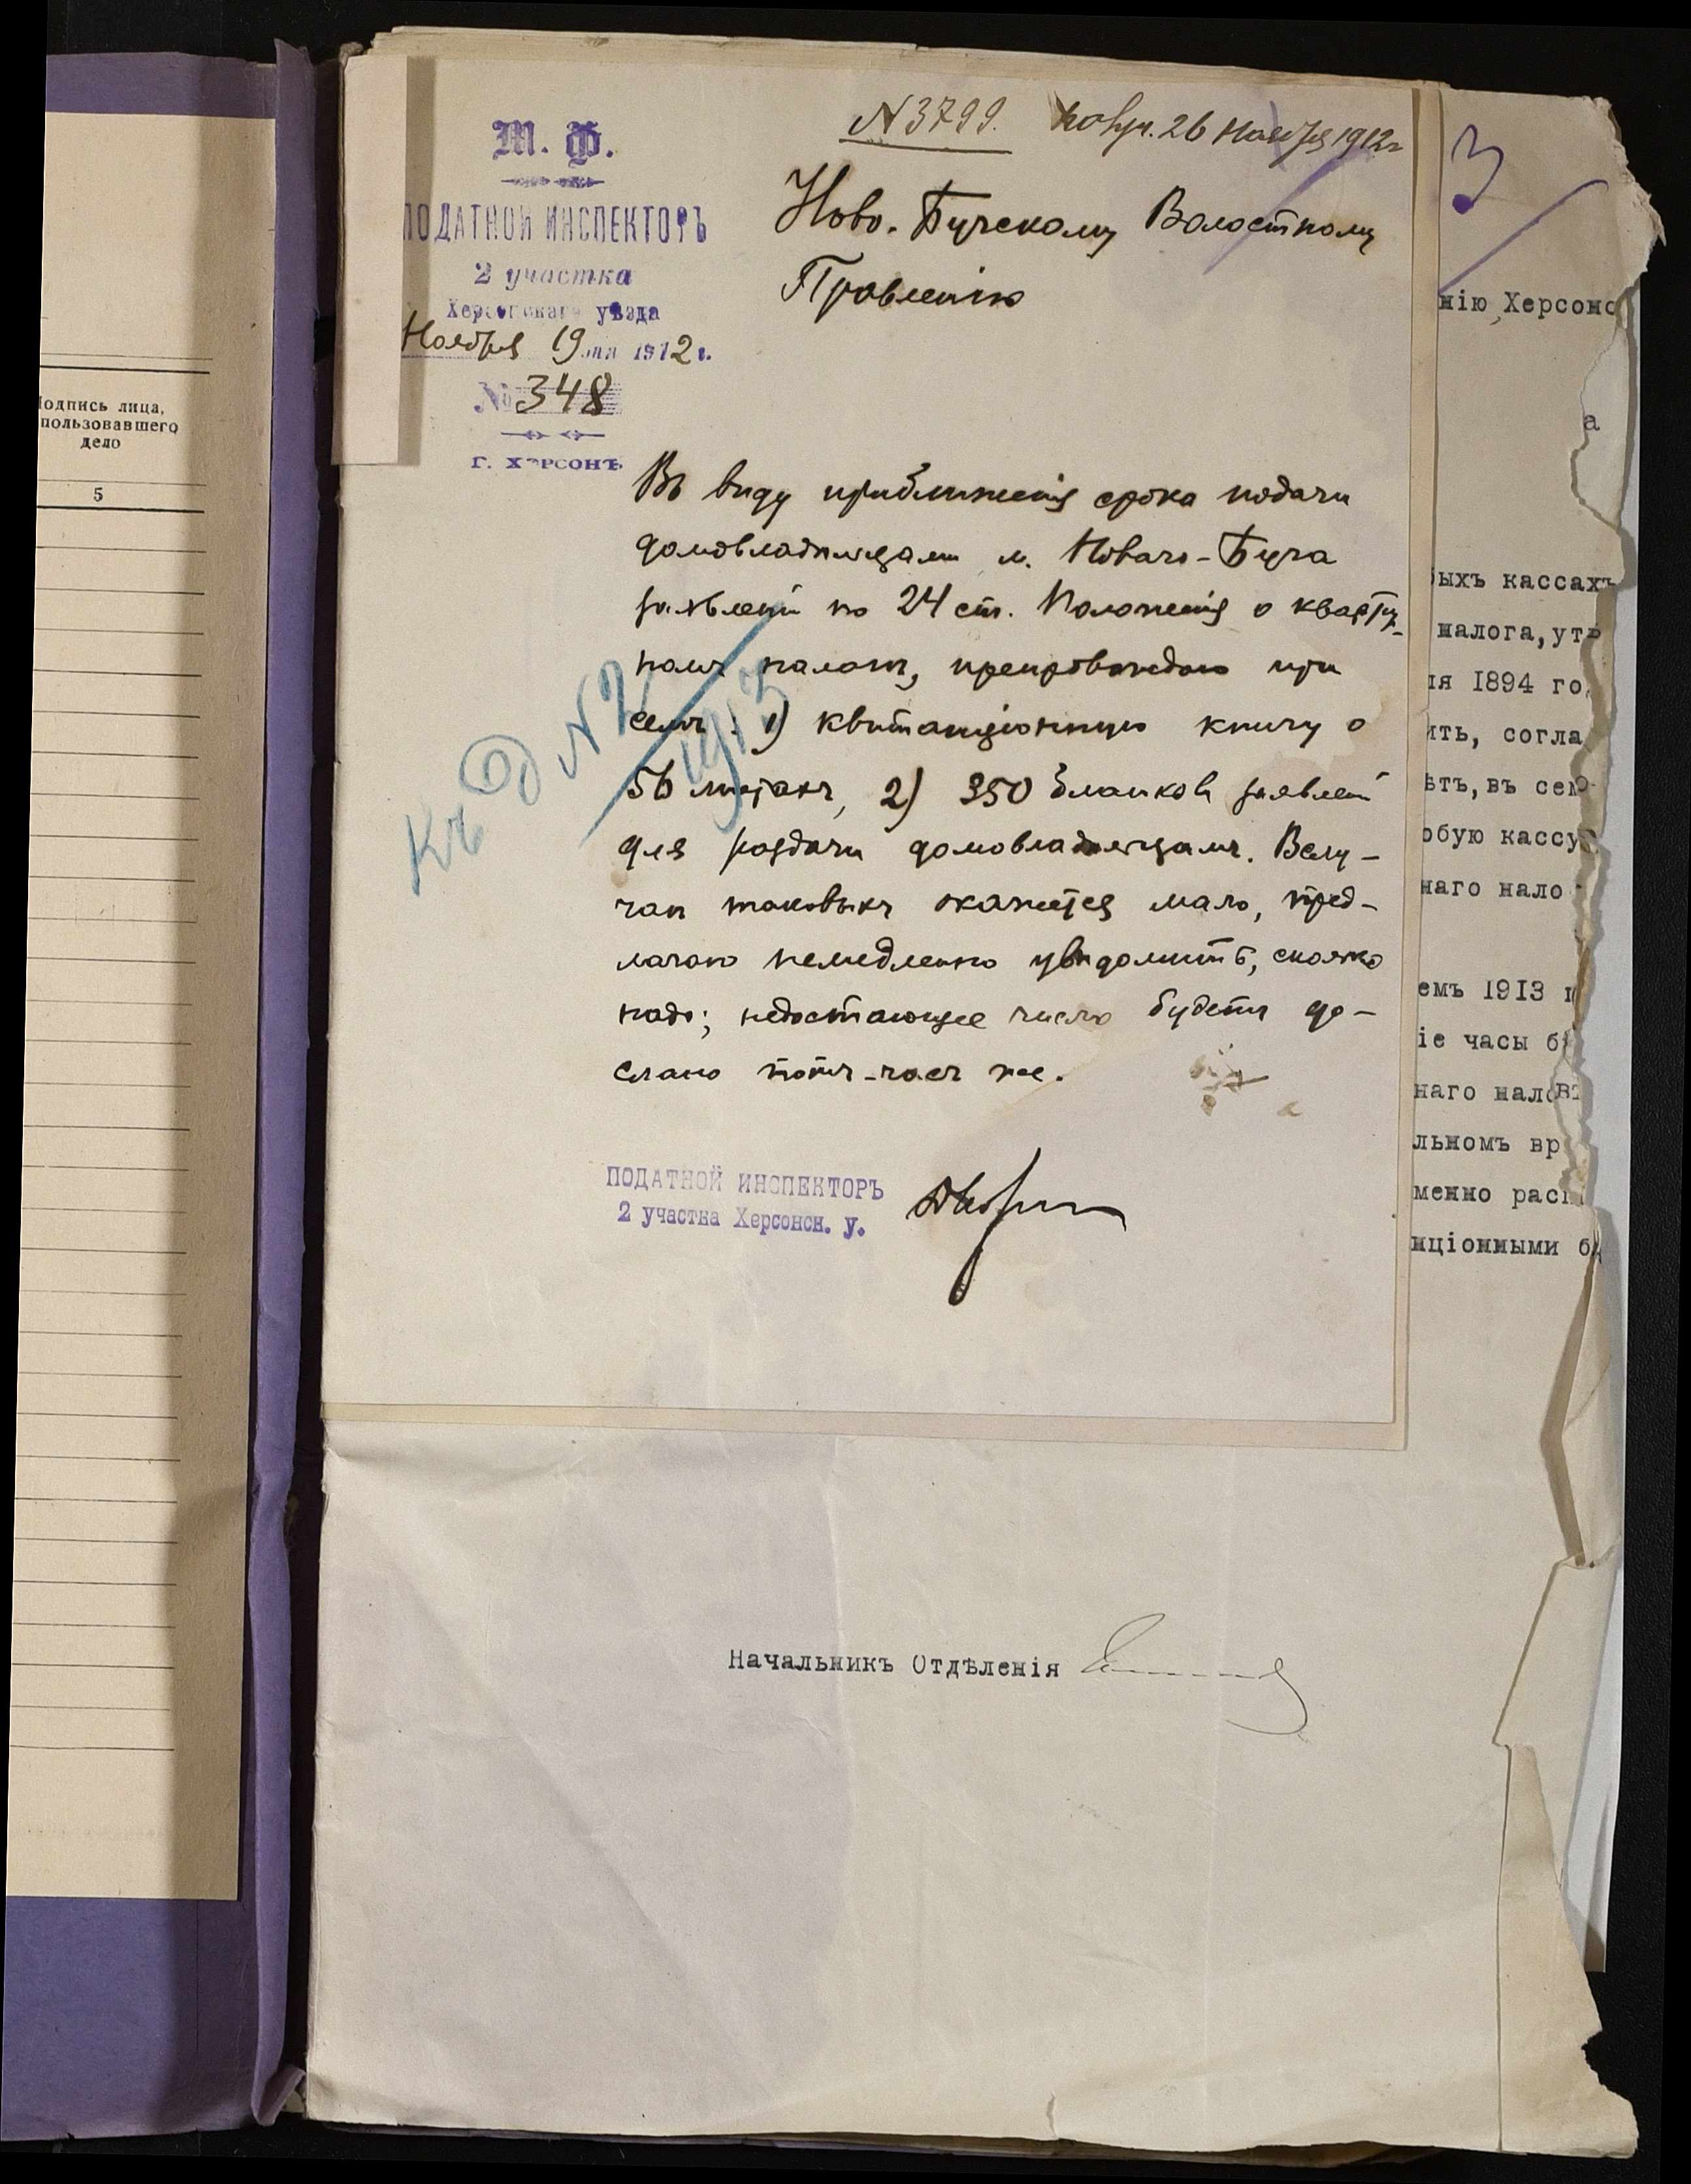 Подпись лица,
пользовавшего
дело
5
М. Ф.
ПОДАТНОЙ ИНСПЕКТОРЪ
2 участка
Херсонскаго уѣзда
Ноября 19 дня 1912 г.
№ 348
Г. ХЕРСОНЪ
N 3799. Получ. 26 Ноября 1912 г
Ново-Бугскому Волостному
Правленію
Въ виду приближенія срока подачи
домовладѣльцами м. Новаго-Буга
заявленій по 24 ст. Положенія о квартир-
номъ налогѣ, препровождаю при
семъ: 1) квитанціонную книгу о
56 листахъ, 2) 350 бланковъ заявленій
для раздачи домовладѣльцамъ. Вслу-
чаѣ таковыхъ окажется мало, пред-
лагаю немедленно увѣдомить, сколько
надо; недостающее число будетъ до-
слано тотъ-часъ же.
Къ Д N 2
1913
ПОДАТНОЙ ИНСПЕКТОРЪ
2 участка Херсонск. у.
3
нію Херсонс
а
ыхъ кассахъ
налога, утв
ія 1894 го
ить, согла
ѣтъ, въ сем
обую кассу
наго нало
емъ 1913 г
іе часы б
наго нало
льномъ вр
менно расп
нціонными б
Начальникъ Отдѣленія